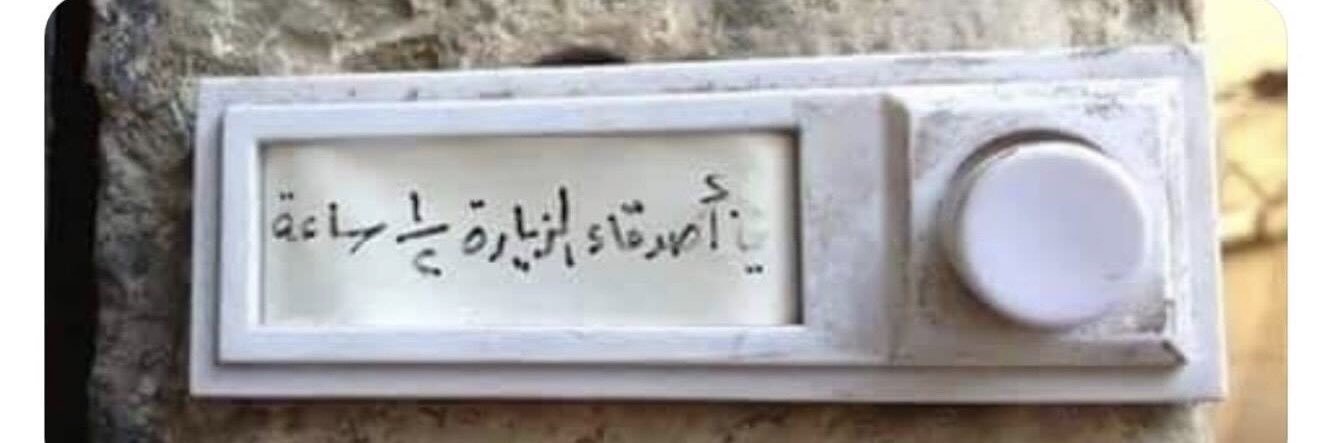 يا أصدقاء الزيارة ½ ساعة